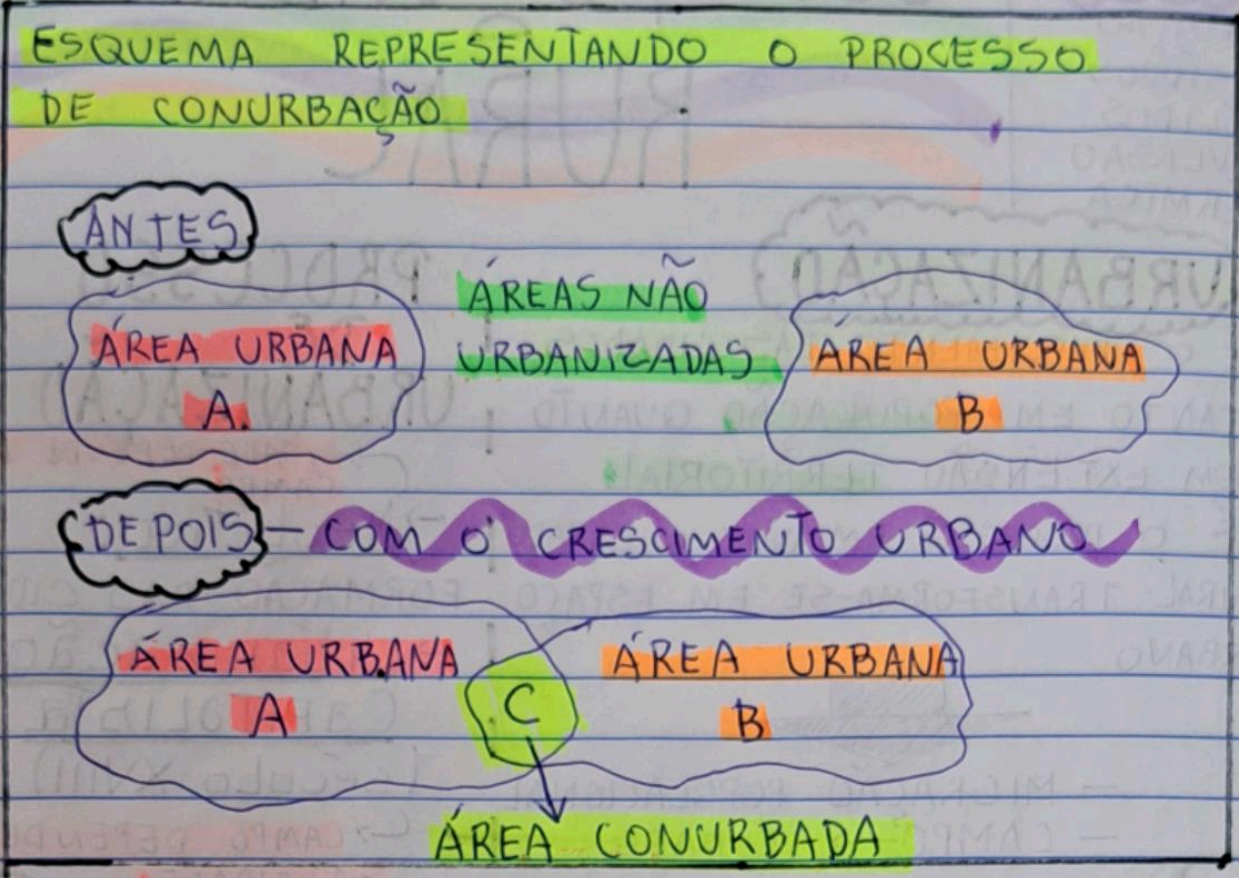 ESQUEMA REPRESENTANDO O PROCESSO
DE CONURBAÇÃO
ANTES
ÁREAS NÃO
URBANIZADAS
ÁREA URBANA
A.
ÁREA URBANA
B
DEPOIS — COM O CRESCIMENTO URBANO
ÁREA URBANA
A
C
ÁREA URBANA
B
ÁREA CONURBADA